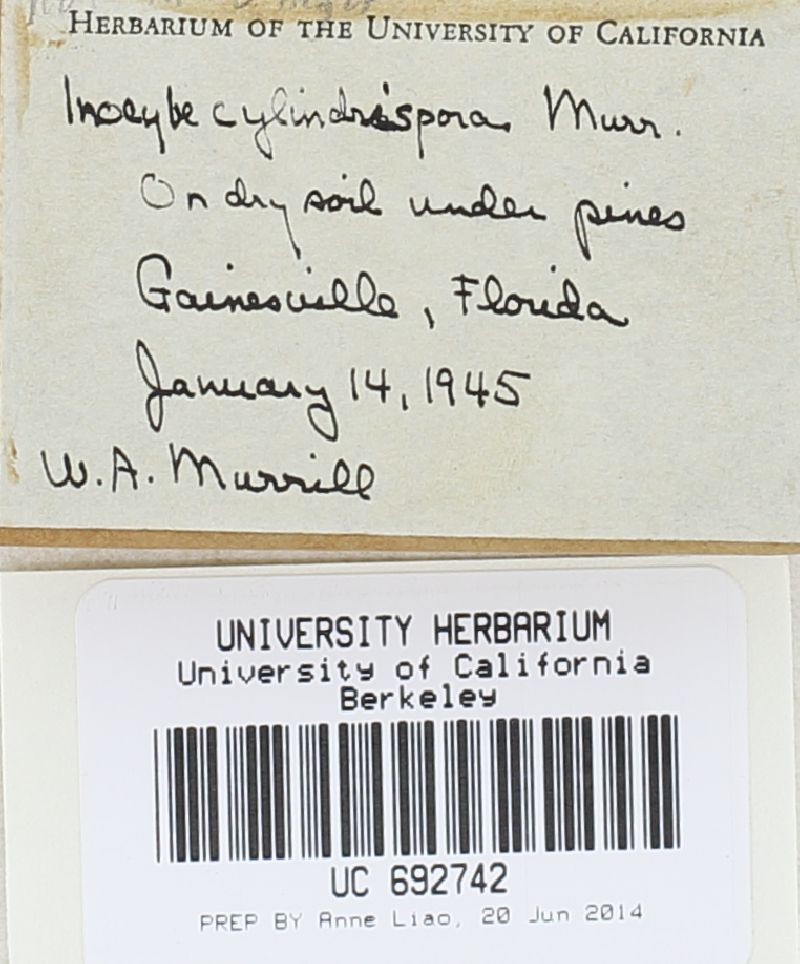 HERBARIUM OF THE UNIVERSITY OF CALIFORNIA
Inocybe cylindrispora Murr.
On dry soil under pines
Gainesville, Florida
January 14, 1945
W.A. Murrill
UNIVERSITY HERBARIUM
University of California
Berkeley
UC 692742
PREP BY Anne Liao, 20 Jun 2014